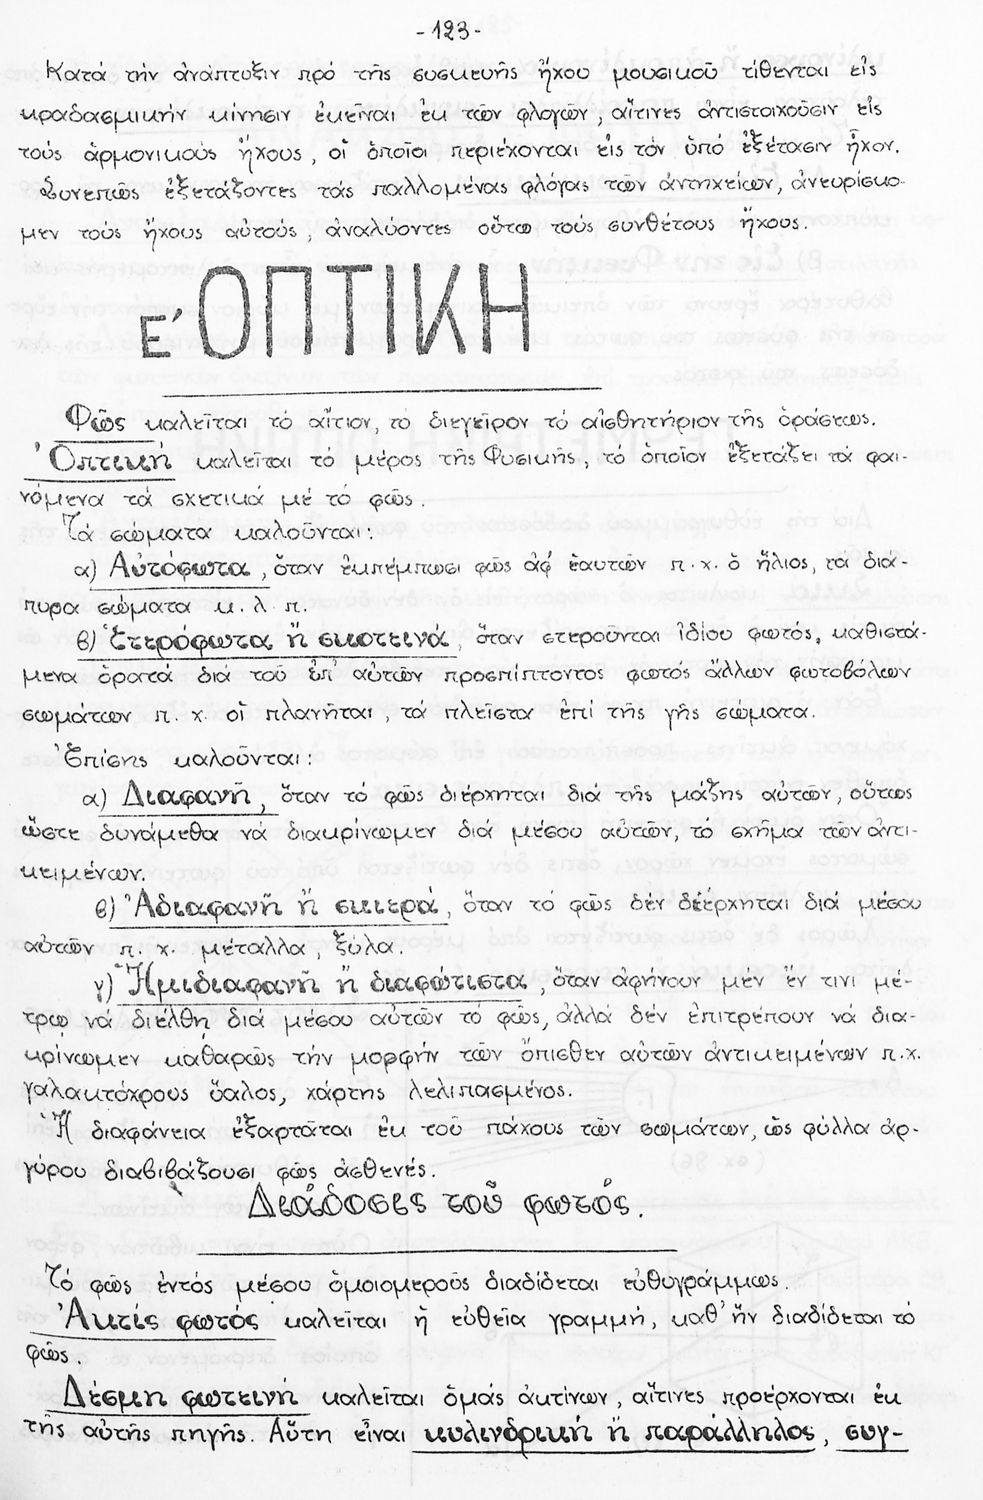 -123-
Κατά τήν ἀνάπτυξιν πρό τῆς συσκευῆς ἤχου μουσικοῦ τίθενται εἰς
κραδασμικήν κίνησιν ἐκεῖναι ἐκ τῶν φλογῶν, αἵτινες ἀντιστοιχοῦσιν εἰς
τούς ἁρμονικούς ἤχους, οἱ ὁποῖοι περιέχονται εἰς τόν ὑπό ἐξέτασιν ἦχον.
Συνεπῶς ἐξετάζοντες τάς παλλομένας φλόγας τῶν ἀντηχείων, ἀνευρίσκο-
μεν τούς ἤχους αὐτούς, ἀναλύοντες οὕτω τούς συνθέτους ἤχους.
Ε' ΟΠΤΙΚΗ
Φῶς καλεῖται τό αἴτιον, τό διεγεῖρον τό αἰσθητήριον τῆς ὁράσεως.
Ὀπτική καλεῖται τό μέρος τῆς Φυσικῆς, τό ὁποῖον ἐξετάζει τά φαι-
νόμενα τά σχετικά μέ τό φῶς.
Τά σώματα καλοῦνται:
α) Αὐτόφωτα, ὅταν ἐκπέμπωσι φῶς ἀφ' ἑαυτῶν π.χ. ὁ ἥλιος, τά διά-
πυρα σώματα κ. λ. π.
β) Ἑτερόφωτα ἤ σκοτεινά, ὅταν στεροῦνται ἰδίου φωτός, καθιστά-
μενα ὁρατά διά τοῦ ἐπ' αὐτῶν προσπίπτοντος φωτός ἄλλων φωτοβόλων
σωμάτων π. χ. οἱ πλανῆται, τά πλεῖστα ἐπί τῆς γῆς σώματα.
Ἐπίσης καλοῦνται:
α) Διαφανῆ, ὅταν τό φῶς διέρχηται διά τῆς μάζης αὐτῶν, οὕτως
ὥστε δυνάμεθα νά διακρίνωμεν διά μέσου αὐτῶν, τό σχῆμα τῶν ἀντι-
κειμένων.
β) Ἀδιαφανῆ ἤ σκιερά, ὅταν τό φῶς δέν διέρχηται διά μέσου
αὐτῶν π. χ. μέταλλα, ξύλα.
γ) Ἡμιδιαφανῆ ἤ διαφώτιστα, ὅταν ἀφήνουν μέν ἔν τινι μέ-
τρω νά διέλθη διά μέσου αὐτῶν τό φῶς, ἀλλά δέν ἐπιτρέπουν νά δια-
κρίνωμεν καθαρῶς τήν μορφήν τῶν ὄπισθεν αὐτῶν ἀντικειμένων π.χ.
γαλακτόχρους ὕαλος, χάρτης λελιπασμένος.
Ἡ διαφάνεια ἐξαρτᾶται ἐκ τοῦ πάχους τῶν σωμάτων, ὡς φύλλα ἀρ-
γύρου διαβιβάζουσι φῶς ἀσθενές.
Διάδοσις τοῦ φωτός.
Τό φῶς ἐντός μέσου ὁμοιομεροῦς διαδίδεται εὐθυγράμμως.
Ἀκτίς φωτός καλεῖται ἡ εὐθεῖα γραμμή, καθ' ἥν διαδίδεται τό
φῶς.
Δέσμη φωτεινή καλεῖται ὁμάς ἀκτίνων, αἵτινες προέρχονται ἐκ
τῆς αὐτῆς πηγῆς. Αὕτη εἶναι κυλινδρική ἤ παράλληλος, συγ-